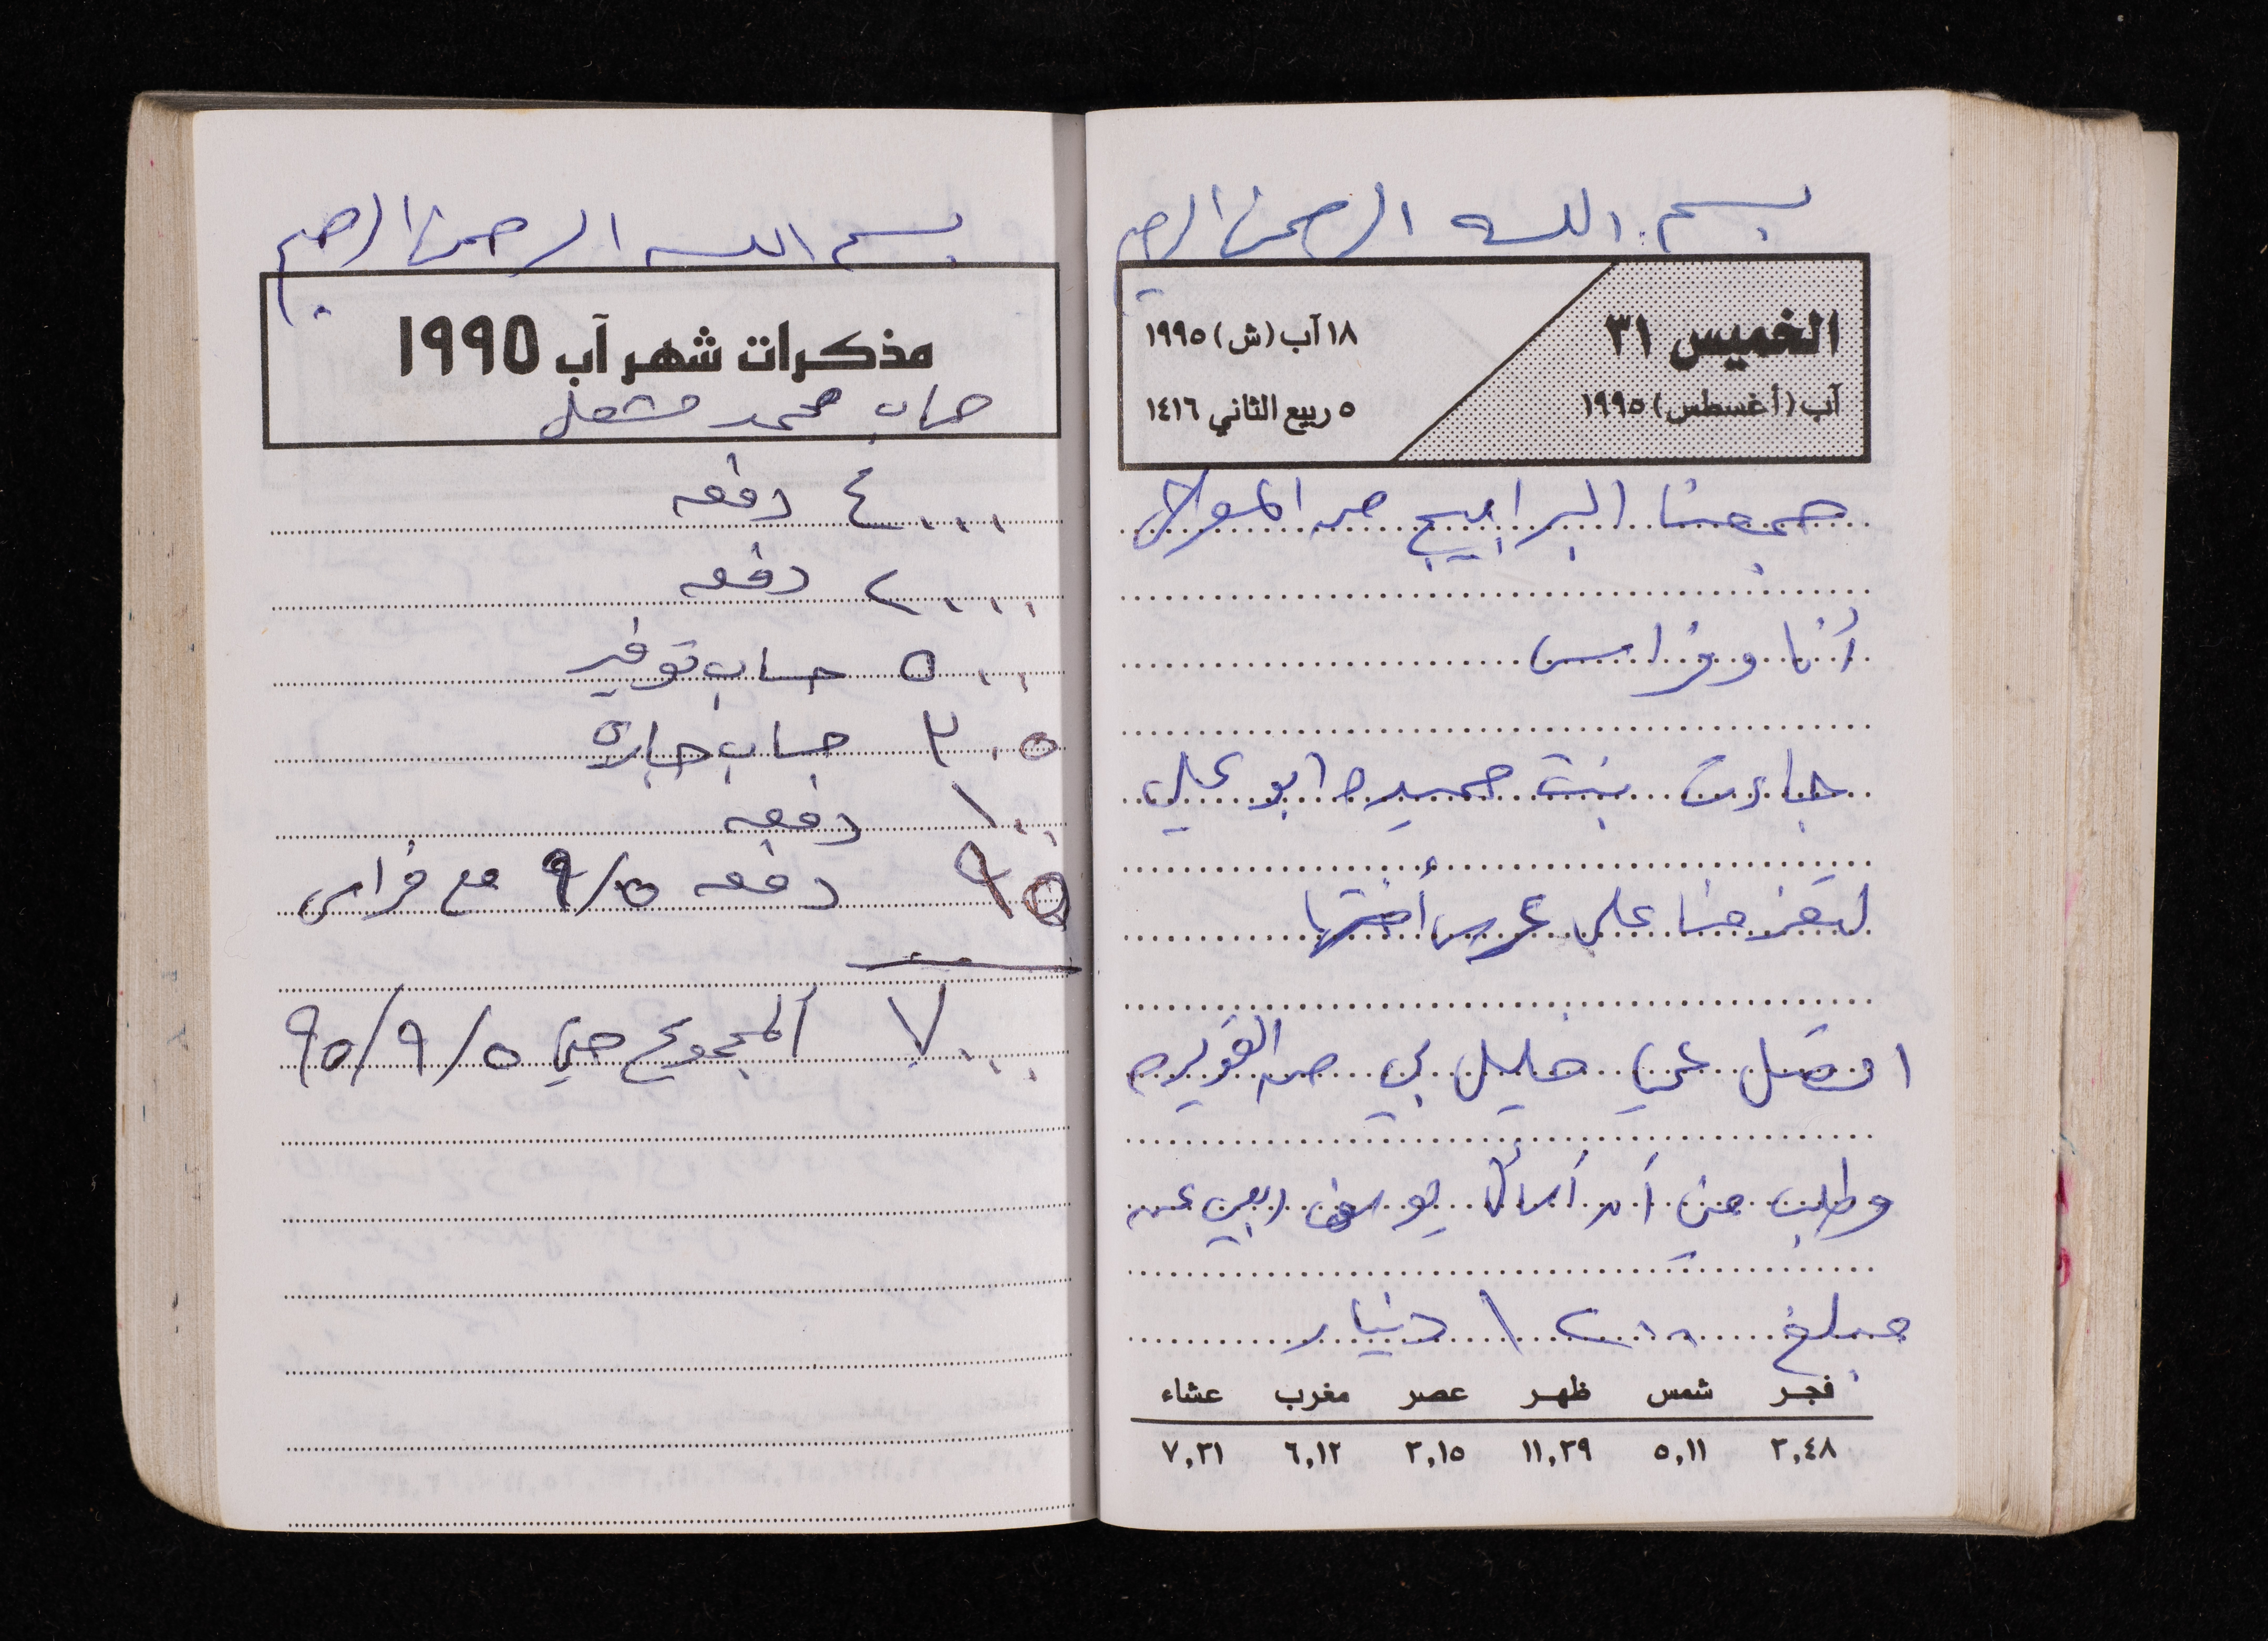 بسم الله الرحمن الرحيم
الخميس ٣١
آب (أغسطس) ١٩٩٥
١٨ آب (ش) ١٩٩٥
٥ ربيع الثاني ١٤١٦
جمعنا البرابيج من المولال
أنا وفراس
جاءت بنت حميده ابو علي
لتعزمنا على عرس أختها
اتصل عمي خليل بي من القويره
وطلب مني أن أسأل يوسف ربعي عن
مبلغ ١٢٠٠ دينار
فجر شمس ظهر عصر مغرب عشاء
٣,٤٨ ٥,١١ ١١,٣٩ ٣,١٥ ٦,١٢ ٧,٣١
بسم الله الرحمن الرحيم
مذكرات شهر آب ١٩٩٥
حساب محمد مشعل
٤٠٠٠ دفعه
٢٠٠٠ دفعه
٥٠٠ حساب توفير
٣٠٥ حساب
١٠٠ دفعه
٩٥ دفعه ٩/٥ مع فراس
٧٠٠٠ المجموع حتى ٩٥/٩/٥